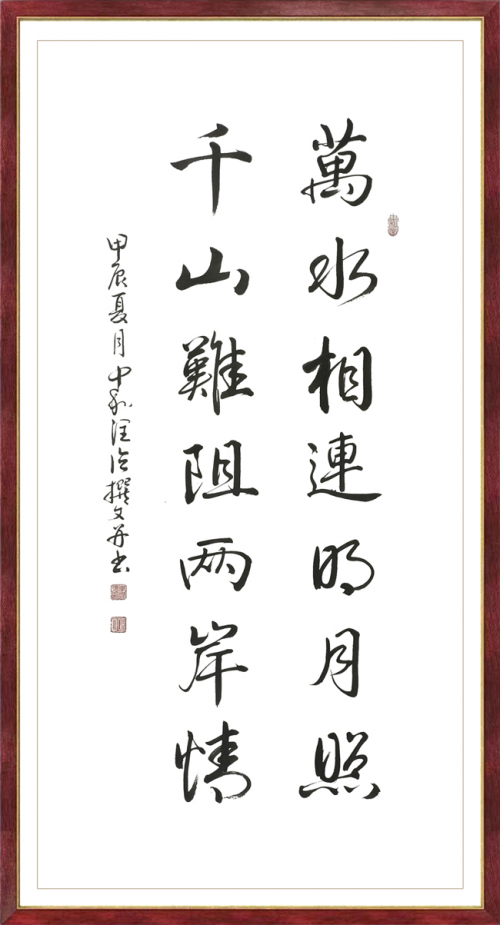 萬水相連明月照
千山難阻两岸情
甲辰夏月中和汪洽撰文并書